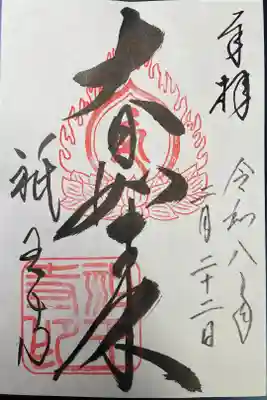 奉拝
令和八年
二月二十二日
大日如来
祇王寺